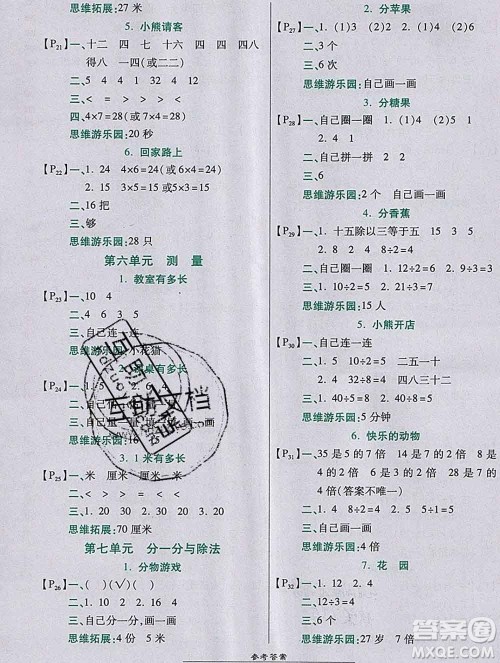 思维拓展:27 米
5. 小熊请客
【P21】一、十二 四 七 十六 四 四 四八
得八 一四(或二七)
二、5 4 4 1 2 2
三、< = > > < >
四、4×7=28(或 7×4=28)
思维游乐园:20 秒
6. 回家路上
【P22】一、1. 24 4×6=24(或 6×4=24)
2. 15 3×5=15(或 5×3=15)
二、16 把
三、够
思维游乐园:28 只
第六单元 测 量
1. 教室有多长
【P23】一、10 4
二、4 6 3 5
三、自己连一连
思维游乐园:小花猫
桌有多长
【P24】一、1.
二、自己
三、自己
思维游乐园:
3. 1 米有多长
【P25】一、米 厘米 厘米 米
二、> < > < =
三、1. 10 30 20 2.
思维拓展:70 厘米
第七单元 分一分与除法
1. 分物游戏
【P26】一、( )(√)( )
二、1. 2 16 4
三、自己分一分,画一画
思维拓展:4 份 5 米
2. 分苹果
【P27】一、1. (1)3 (2)4 2. (1)6 (2)2
二、3 个
三、6 个
思维游乐园:自己画一画
3. 分糖果
【P28】一、自己圈一圈 (1)2 (2)5 1
二、自己拼一拼 2 3
三、6
思维游乐园:2 个 自己画一画
4. 分香蕉
【P29】一、1. 十五除以三等于五 15 3 5
2. 18 2 9 18÷2=9
二、自己圈一圈 1. 2 2. 4
三、1. 4 8÷2=4 2. 9÷3=3
思维游乐园:15 人
5. 小熊开店
【P30】一、自己连一连
二、1. 10÷2=5 二五一十
2. 32÷4=8 四八三十二
三、2 24÷8=3 24÷4=6
思维游乐园:5 分钟
6. 快乐的动物
【P31】一、35 是 5 的 7 倍 14 是 7 的 2 倍 8
是 4 的 2 倍 64 是 8 的 8 倍 28 是 7
的 4 倍(答案不唯一)
二、1. 4 8÷2=4 2. 5 40÷8=5
三、自己画一画
思维游乐园:4 倍
7. 花 园
【P32】一、1. 12 2. 4
二、1. 18÷6=3 2. 12÷3=4
3. 12÷4=3
三、自己画一画
思维游乐园:27 岁 7 倍
参考答案
答案圈
MXQE.COM